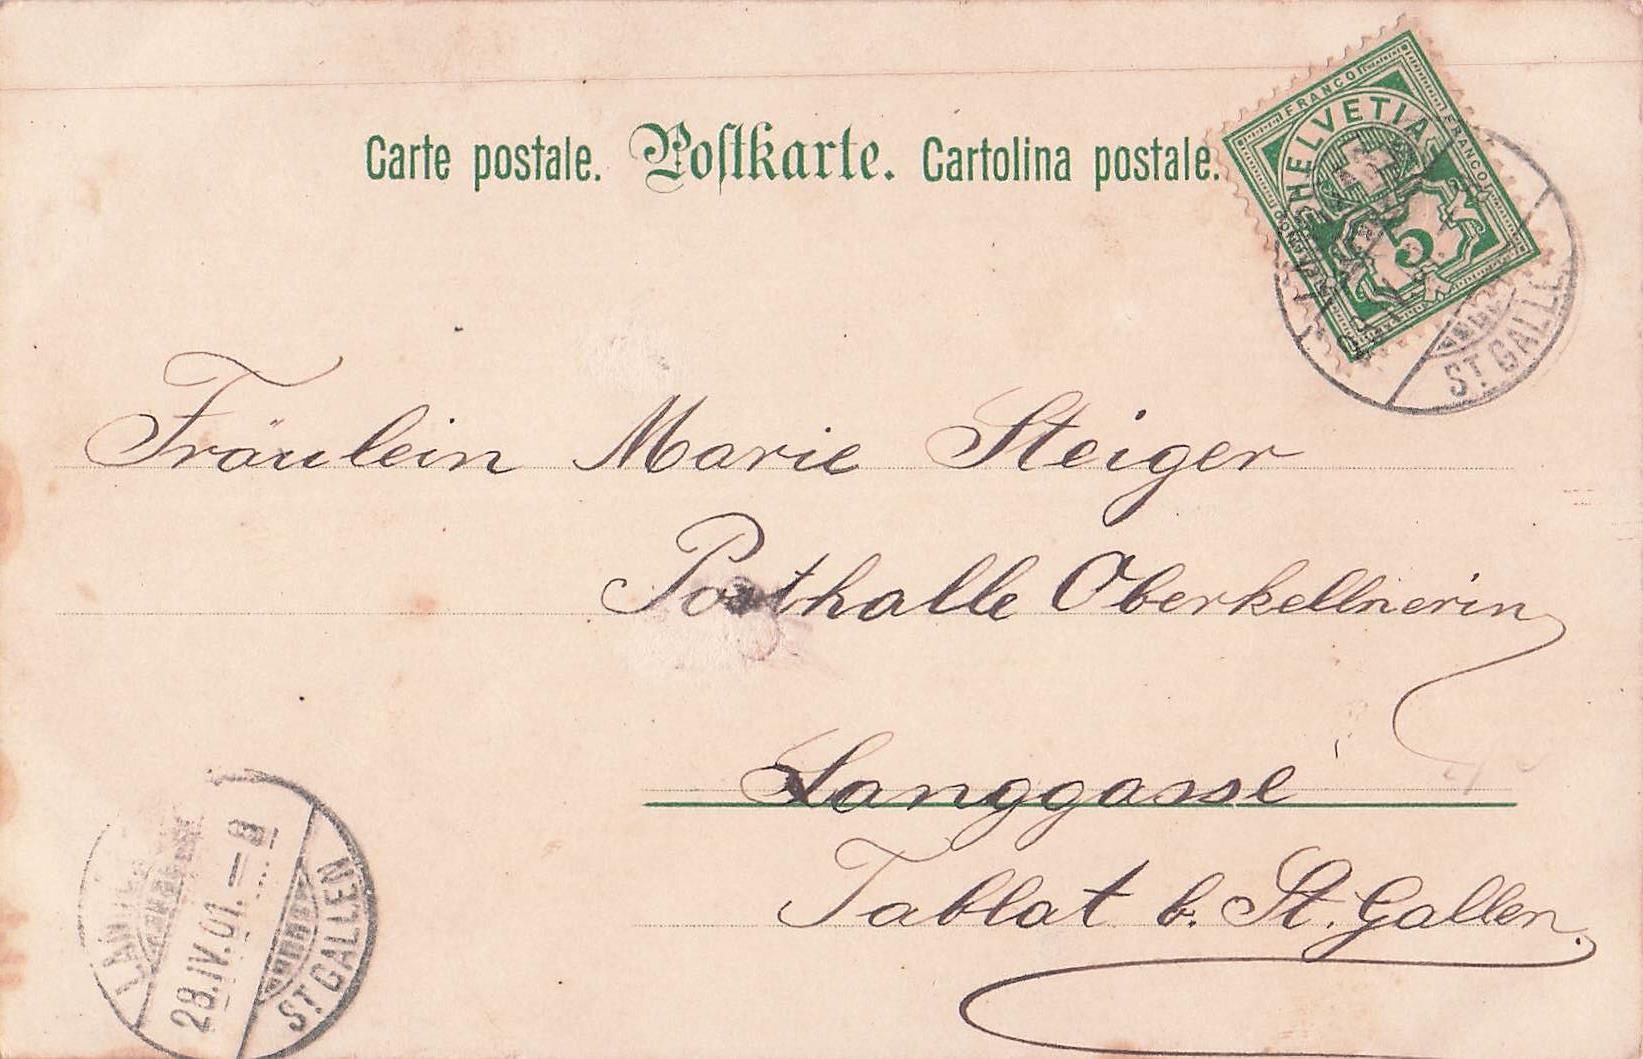 Carte postale. Postkarte. Cartolina postale.
FRANCO FRANCO
HELVETIA
5
ST. GALLE
Fräulein Marie Steiger
Posthalle Oberkellnerin
Langgasse
Tablat b. St. Gallen.
28.IV.01.–8
ST. GALLEN